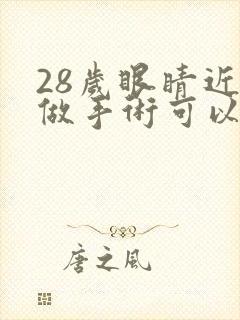 28歲眼睛近
做手術可以
唐之风